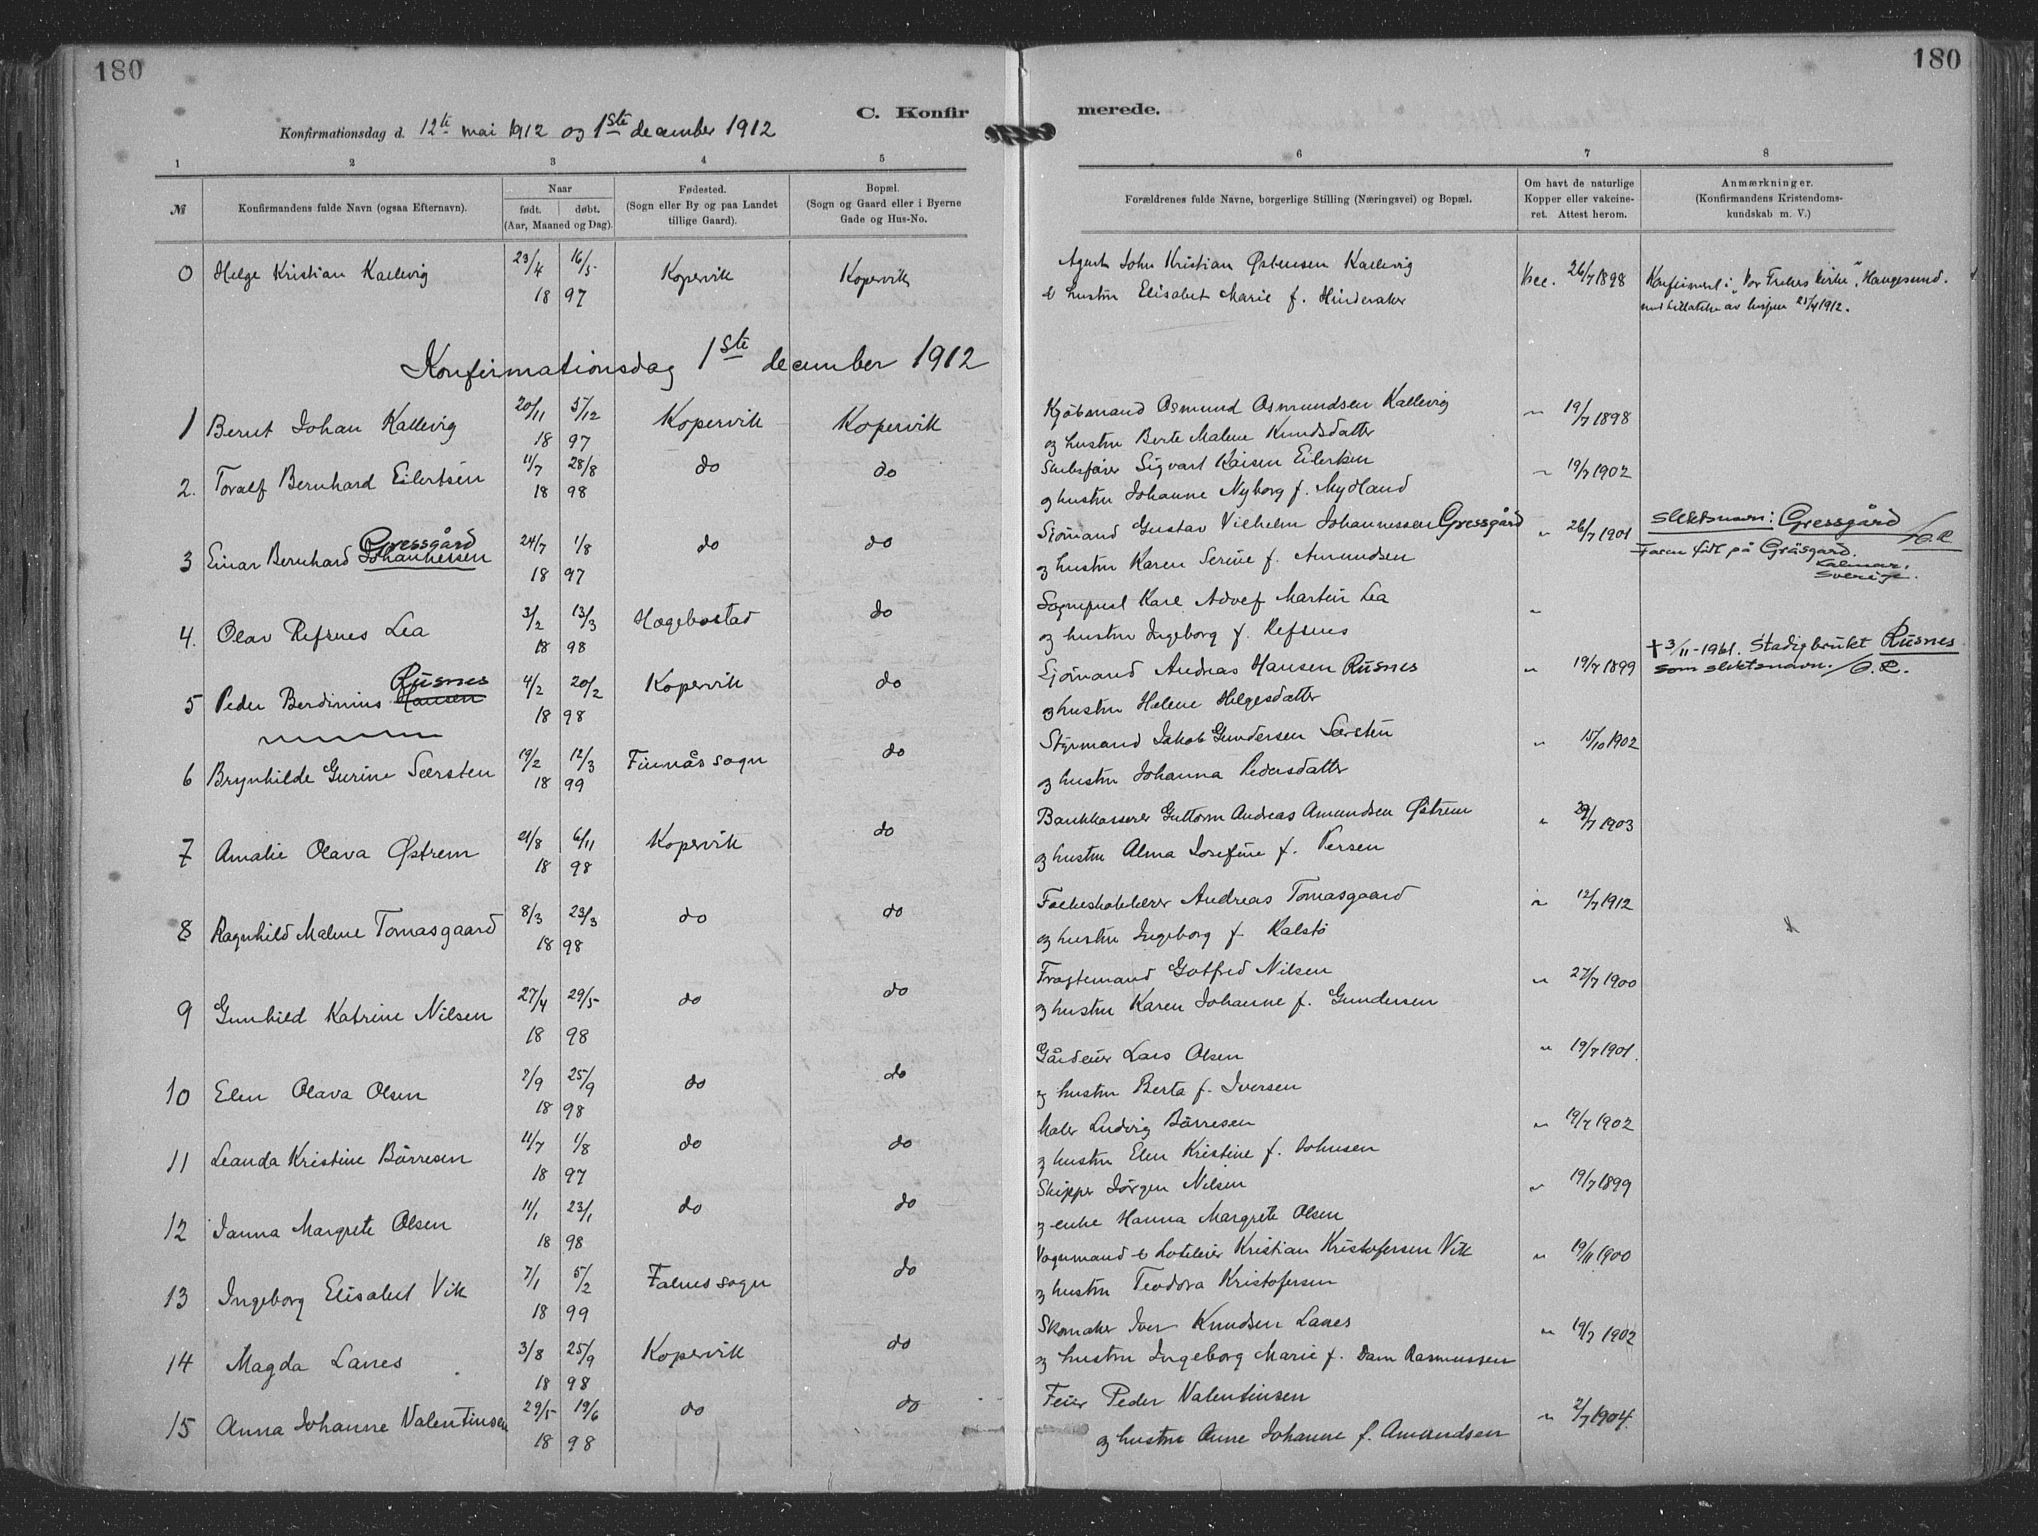 180
180
C. Konfir
merede.
Konfirmationsdag d. 12te mai 1912 og 1ste december 1912
1 2 3 4 5 6 7 8
№
Konfirmandens fulde Navn (ogsaa Efternavn).
Naar
født. døbt.
(Aar, Maaned og Dag).
Fødested.
(Sogn eller By og paa Landet
tillige Gaard).
Bopæl.
(Sogn og Gaard eller i Byerne
Gade og Hus-No.
Forældrenes fulde Navne, borgerlige Stilling (Næringsvei) og Bopæl.
Om havt de naturlige
Kopper eller vakcine-
ret. Attest herom.
Anmærkninger.
(Konfirmandens Kristendoms-
kundskab m. V.)
0 Helge Kristian Kallevig 23/4 16/5 Kopervik Kopervik Agent John Kristian Østensen Kallevig Vac. 26/7 1898 Konfirmert i "Vor Frelsers kirke", Haugesund.
18 97 & hustru Elisabet Marie f. Hinderaker med tillatelse av bispen 25/4 1912.
Konfirmationsdag 1ste december 1912
1 Bernt Johan Kallevig 20/11 5/12 Kopervik Kopervik Kjøbmand Osmund Osmundsen Kallevig " 19/7 1898
18 97 og hustru Berte Malene Knudsdatter
2. Toralf Bernhard Eilertsen 11/7 28/8 do do Skibsfører Sigvart Kaisen Eilertsen " 19/7 1902
18 98 og hustru Johanne Nyborg f. Mydland
3 Einar Bernhard Johannessen Gressgård 24/7 1/8 do do Sjømand Gustav Vilhelm Johannessen Gressgård " 26/7 1901 Slektsnavn: Gressgård /G.R.
18 97 og hustru Karen Serine f. Amundsen Faren født på Gräsgård.
Kalmar,
Sverige.
4. Olav Refsnes Lea 3/2 13/3 Hægebostad do Sogneprest Karl Adolf Martin Lea "
18 98 og hustru Ingeborg f. Refsnes
5 Peder Berdinius Hansen Rusnes 4/2 20/2 Kopervik do Sjømand Andreas Hansen Rusnes " 19/7 1899 + 3/11-1961. Stadig brukt Rusnes
18 98 og hustru Helene Helgesdatter som slektsnavn. /G.R.
6 Brynhilde Gurine Sørsten 19/2 12/3 Finnås sogn do Styrmand Jakob Gundersen Sørsten " 15/10 1902
18 99 og hustru Johanna Pedersdatter
7 Amalie Olava Østrem 21/8 6/11 Kopervik do Bankkasserer Guttorm Andreas Amundsen Østrem " /7 1903
18 98 og hustru Alma Josefine f. Persen
8 Ragnhild Malene Tomasgaard 8/3 23/3 do do Andreas Tomasgaard " 12/7 1912
18 98 og hustru Ingeborg f. Kalstø
9 Gunhild Katrine Nilsen 27/4 29/5 do do Fragtemand Gotfred Nilsen " 27/7 1900
18 98 og hustru Karen Johanne f. Gundersen
10 Elen Olava Olsen 2/9 25/9 do do Gårdeier Lars Olsen " 19/7 1901
18 98 og hustru Berta f. Iversen
11 Leanda Kristine Børresen 11/7 1/8 do do Maler Ludvig Børresen " 19/7 1902
18 97 og hustru Elen Kristine f. Johnsen
12 Janna Margrete Olsen 11/1 23/1 do do Skipper Jörgen Nilsen " 19/7 1899
18 98 og enke Hanna Margrete Olsen
13 Ingeborg Elisabet Vik 7/1 5/2 Falnes sogn do Vognmand & hoteleier Kristian Kristofersen Vik " 19/11 1900
18 99 og hustru Teodora Kristofersen
14 Magda Lanes 3/8 25/9 Kopervik do Skomaker Iver Knudsen Lanes " 19/7 1902
18 98 og hustru Ingeborg Marie f. Dam Rasmussen
15 Anna Johanne Valentinsen 29/5 19/6 do do Feier Peder Valentinsen " 2/7 1904.
18 98 og hustru Anne Johanne f. Amundsen